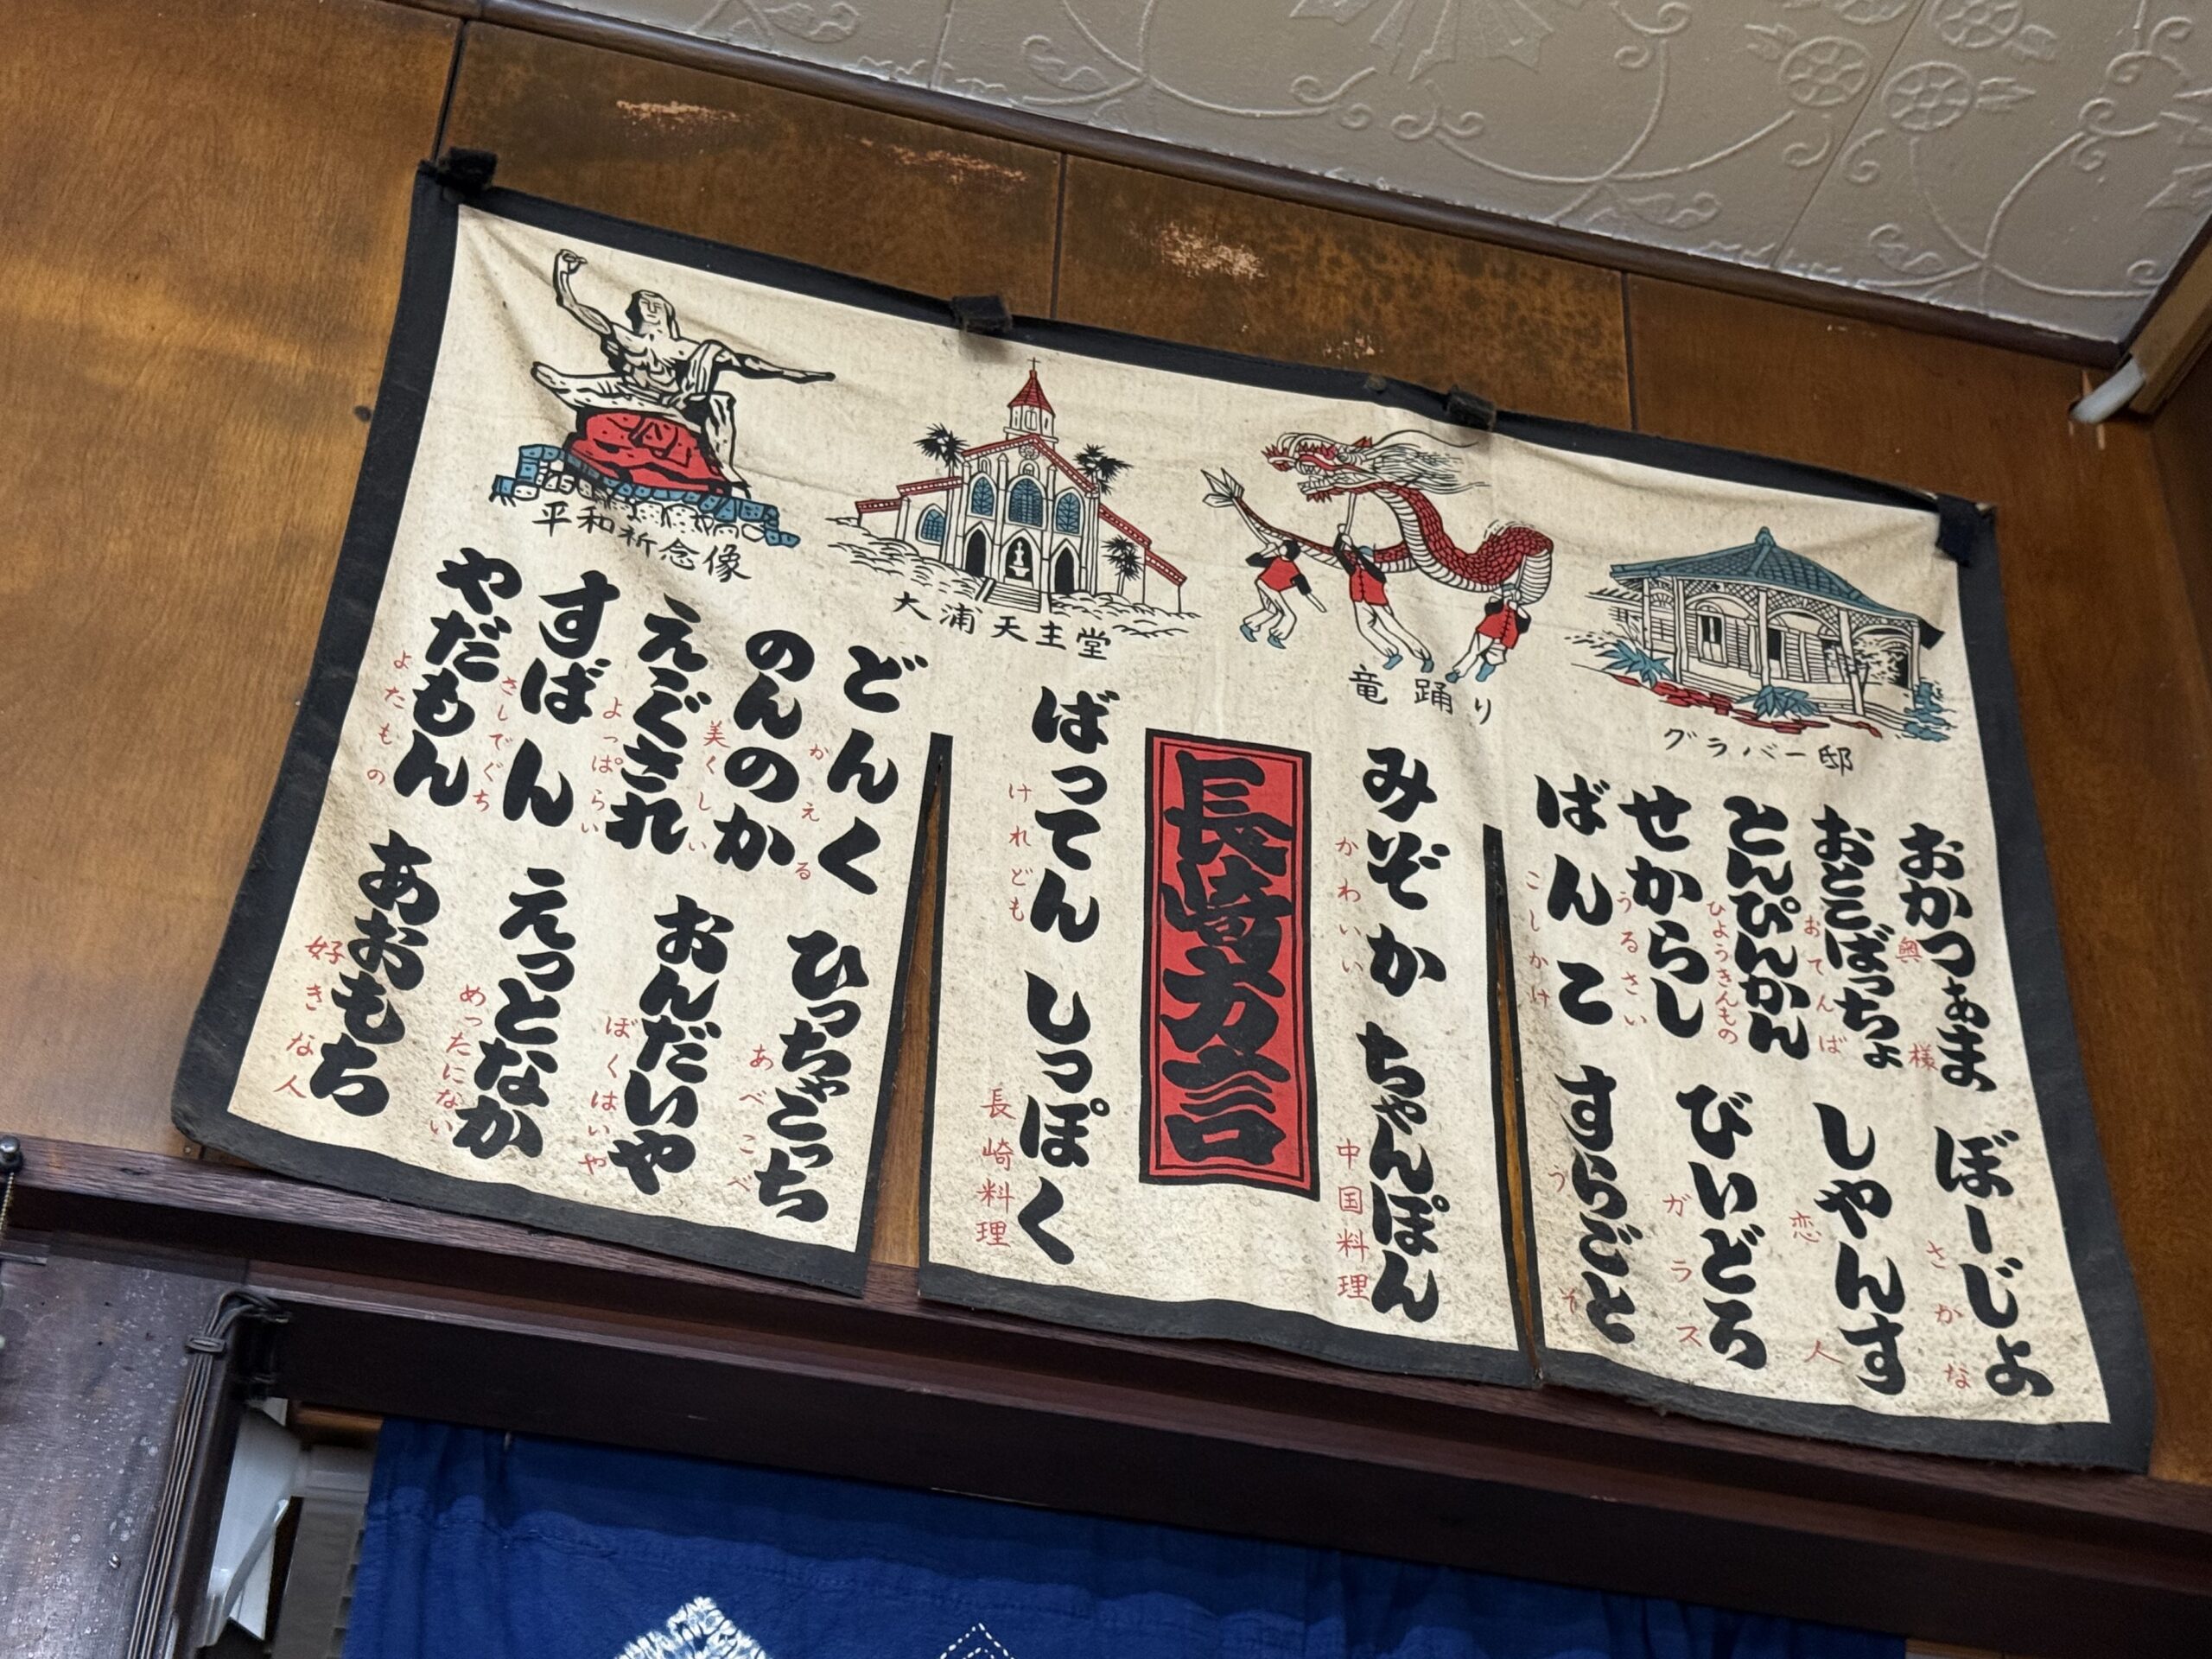 平和祈念像
大浦天主堂
竜踊り
グラバー邸
おかつぁま
奥様
ぼーじょ
さかな
おとこばっちょ
おてんば
しゃんす
恋人
とんぴんかん
ひょうきんもの
びいどろ
ガラス
せからし
うるさい
すらごと
うそ
ばんこ
こしかけ
みぞか
かわいい
ちゃんぽん
中国料理
長崎方言
ばってん
けれども
しっぽく
長崎料理
どんく
かえる
ひっちゃごっち
あべこべ
のんのか
美くしい
おんだいや
ぼくはいや
えぐされ
よっぱらい
えっとなか
めったにない
すばん
さしでぐち
あおもち
好きな人
やだもん
よたもの